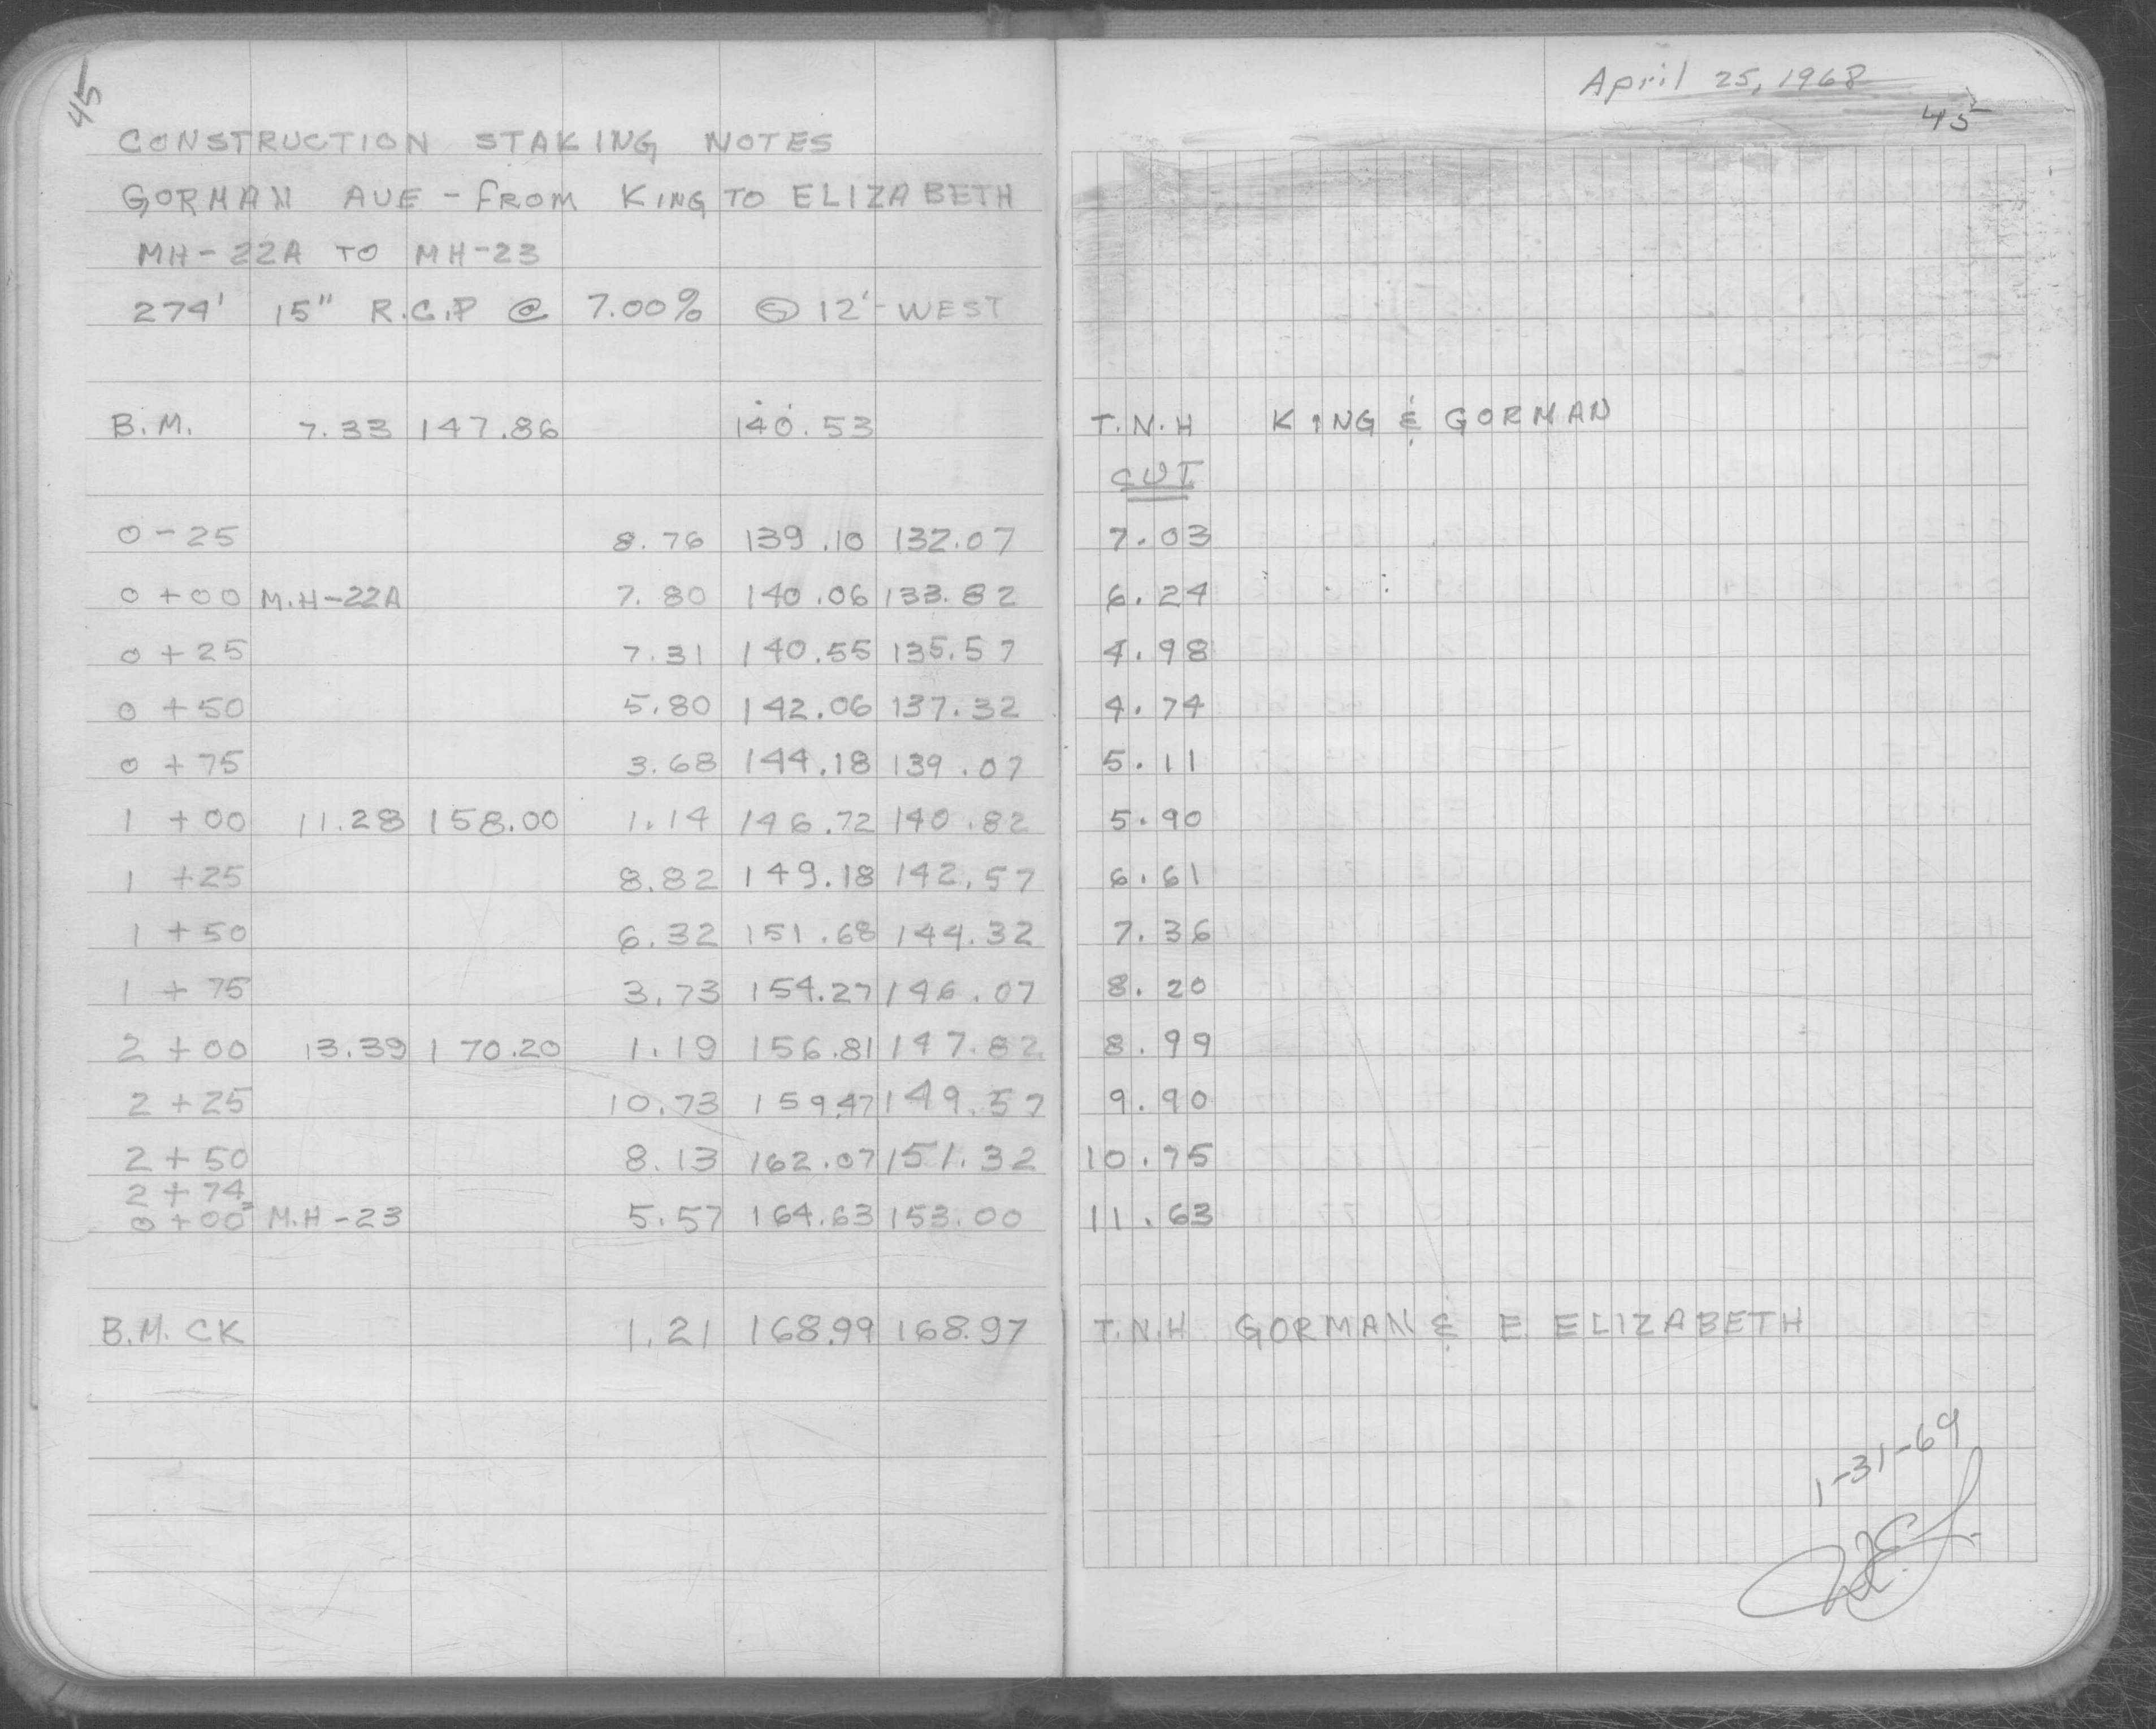 45
CONSTRUCTION STAKING NOTES
GORMAN AVE - FROM KING TO ELIZABETH
MH-22A TO MH-23
274' 15" R.C.P @ 7.00% 12'- WEST
B.M. 7.33 147.86 140.53
0 - 25 8.76 139.10 132.07
0 + 00 M.H-22A 7.80 140.06 133.82
0 + 25 7.31 140.55 135.57
0 + 50 5.80 142.06 137.32
0 + 75 3.68 144.18 139.07
1 + 00 11.28 158.00 1.14 146.72 140.82
1 + 25 8.82 149.18 142.57
1 + 50 6.32 151.68 144.32
1 + 75 3.73 154.27 146.07
2 + 00 13.39 170.20 1.19 156.81 147.82
2 + 25 10.73 159.47 149.57
2 + 50 8.13 162.07 151.32
2 + 74 =
0 + 00 M.H-23 5.57 164.63 153.00
B.M. CK 1.21 168.99 168.97
April 25, 1968
45
T.N.H KING & GORMAN
CUT
7.03
6.24
4.98
4.74
5.11
5.90
6.61
7.36
8.20
8.99
9.90
10.75
11.63
T.N.H GORMAN & E. ELIZABETH
1-31-69